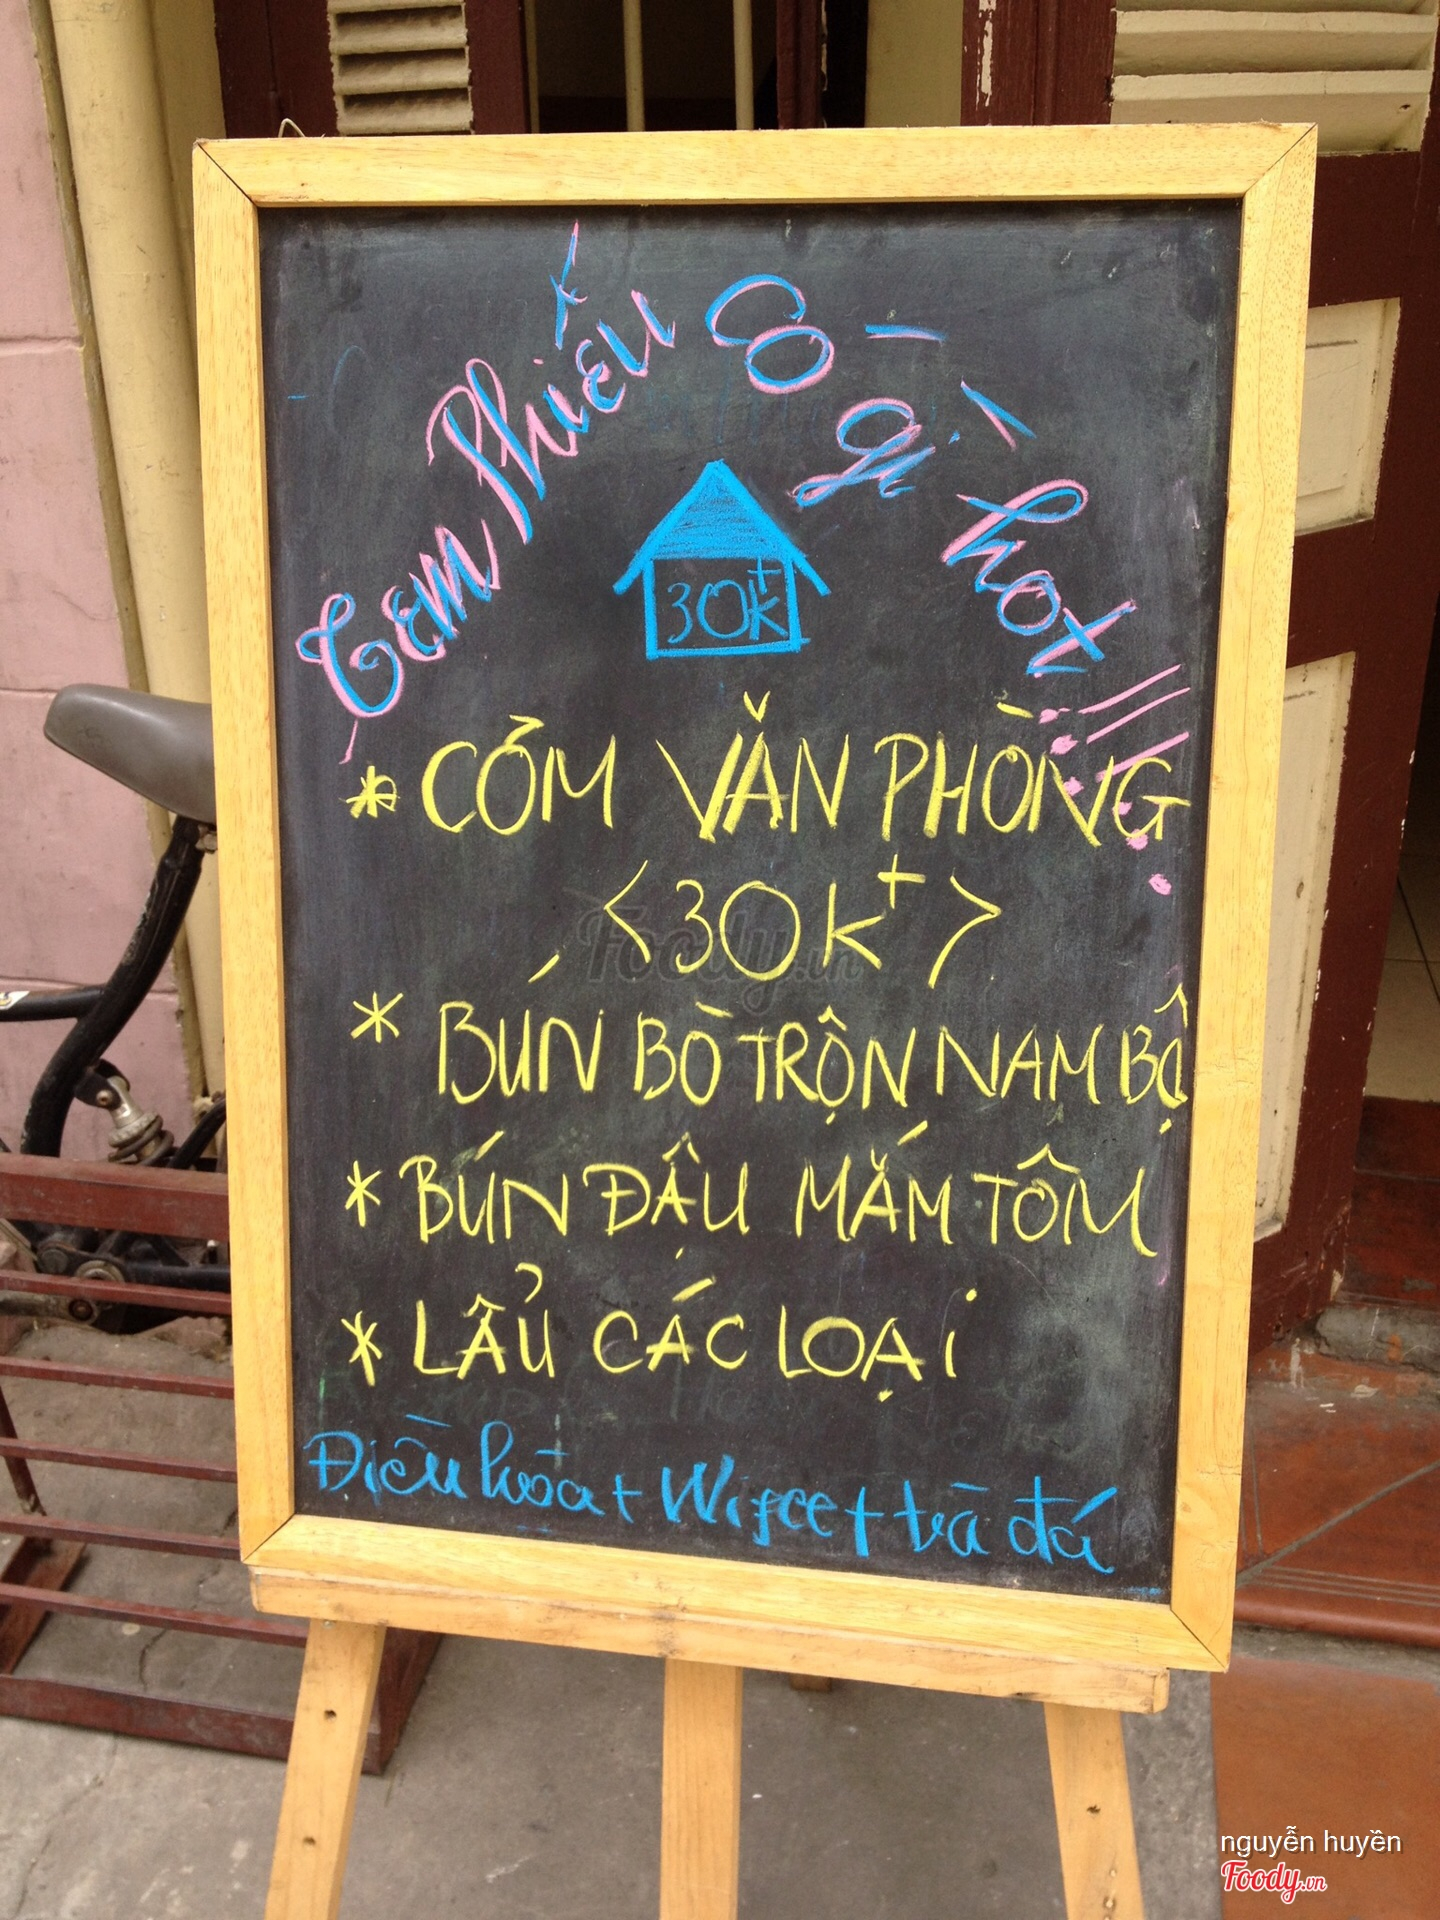 Tem Phiếu Có gì hot!!!
30k+
* CƠM VĂN PHÒNG
<30k+>
* BÚN BÒ TRỘN NAM BỘ
* BÚN ĐẬU MẮM TÔM
* LẨU CÁC LOẠI
Điều hòa + Wifee + trà đá
Foody.vn
nguyễn huyền
Foody.vn